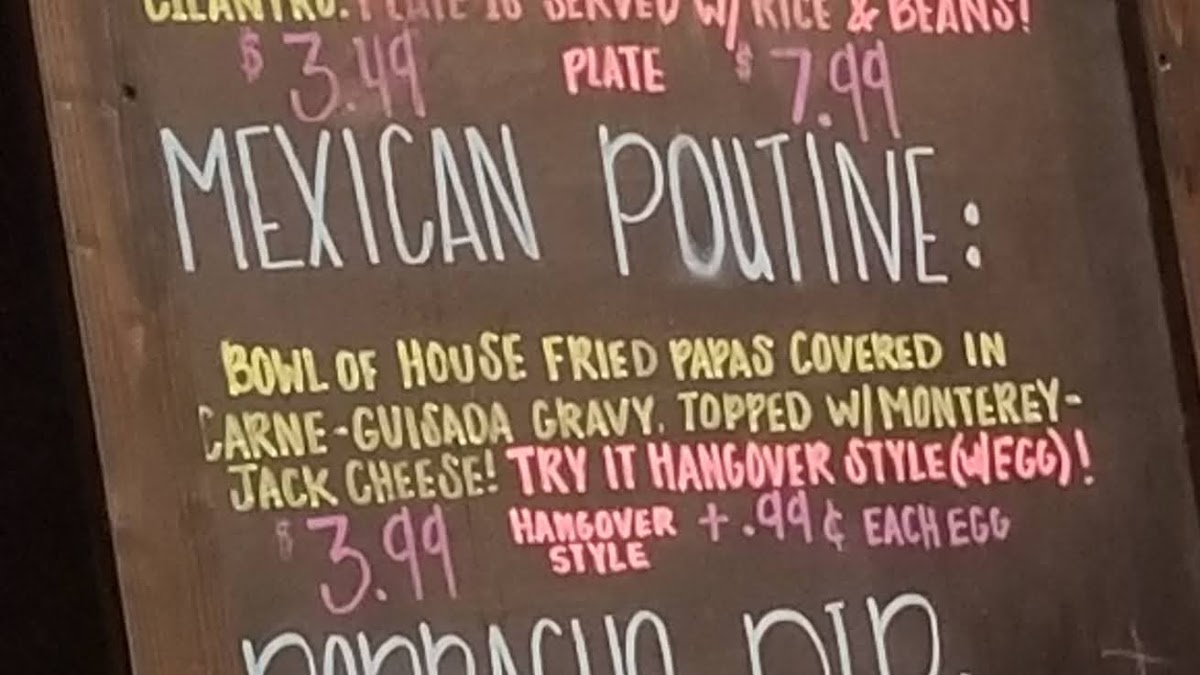 CILANTRO. PLATE IS SERVED W/ RICE & BEANS!
$3.49 PLATE $7.99
MEXICAN POUTINE:
BOWL OF HOUSE FRIED PAPAS COVERED IN
CARNE-GUISADA GRAVY. TOPPED W/MONTEREY-
JACK CHEESE! TRY IT HANGOVER STYLE (W/EGG)!
$3.99 HANGOVER STYLE +.99¢ EACH EGG
BORRACHO DIP: